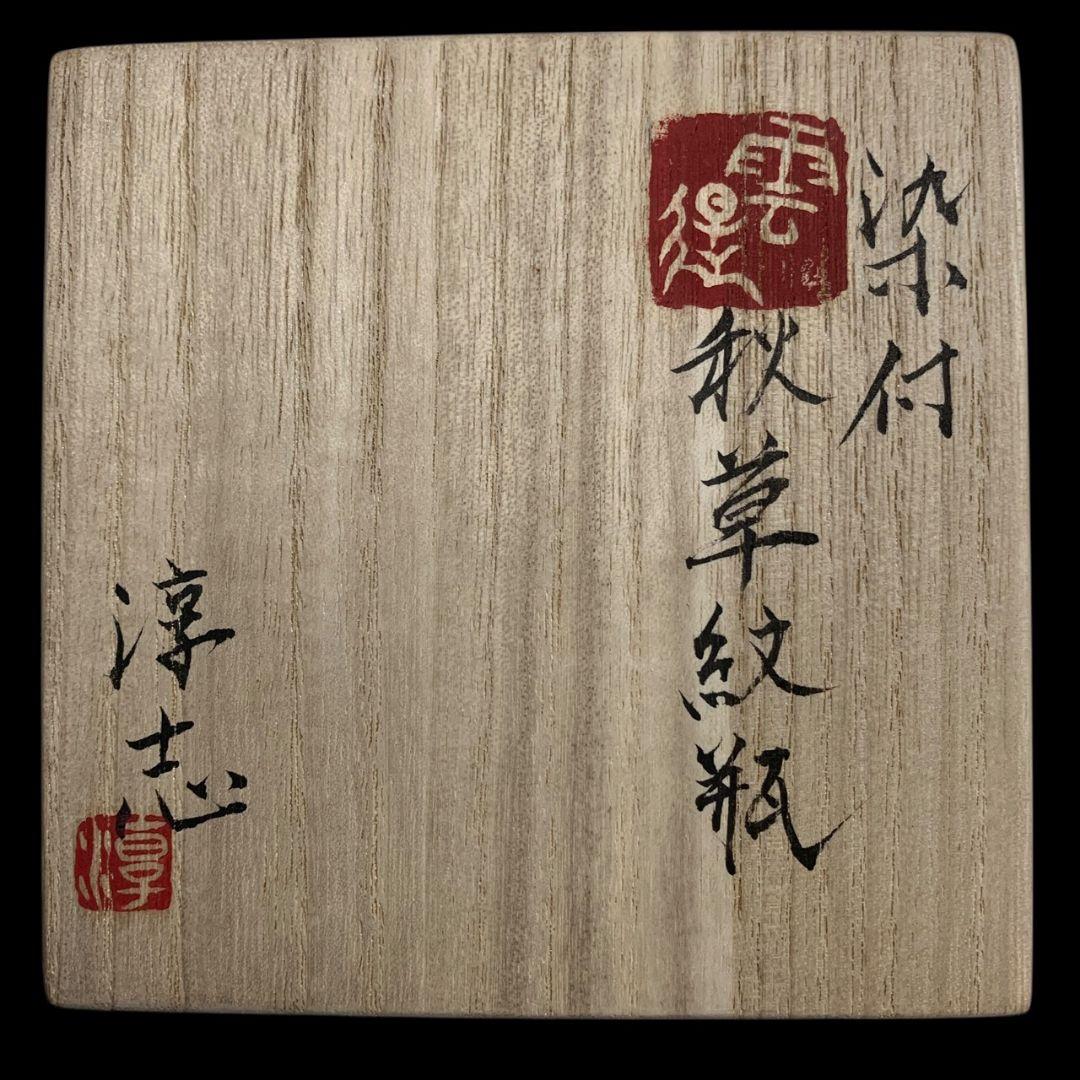 染付
秋草紋瓶
雲
淳志
淳